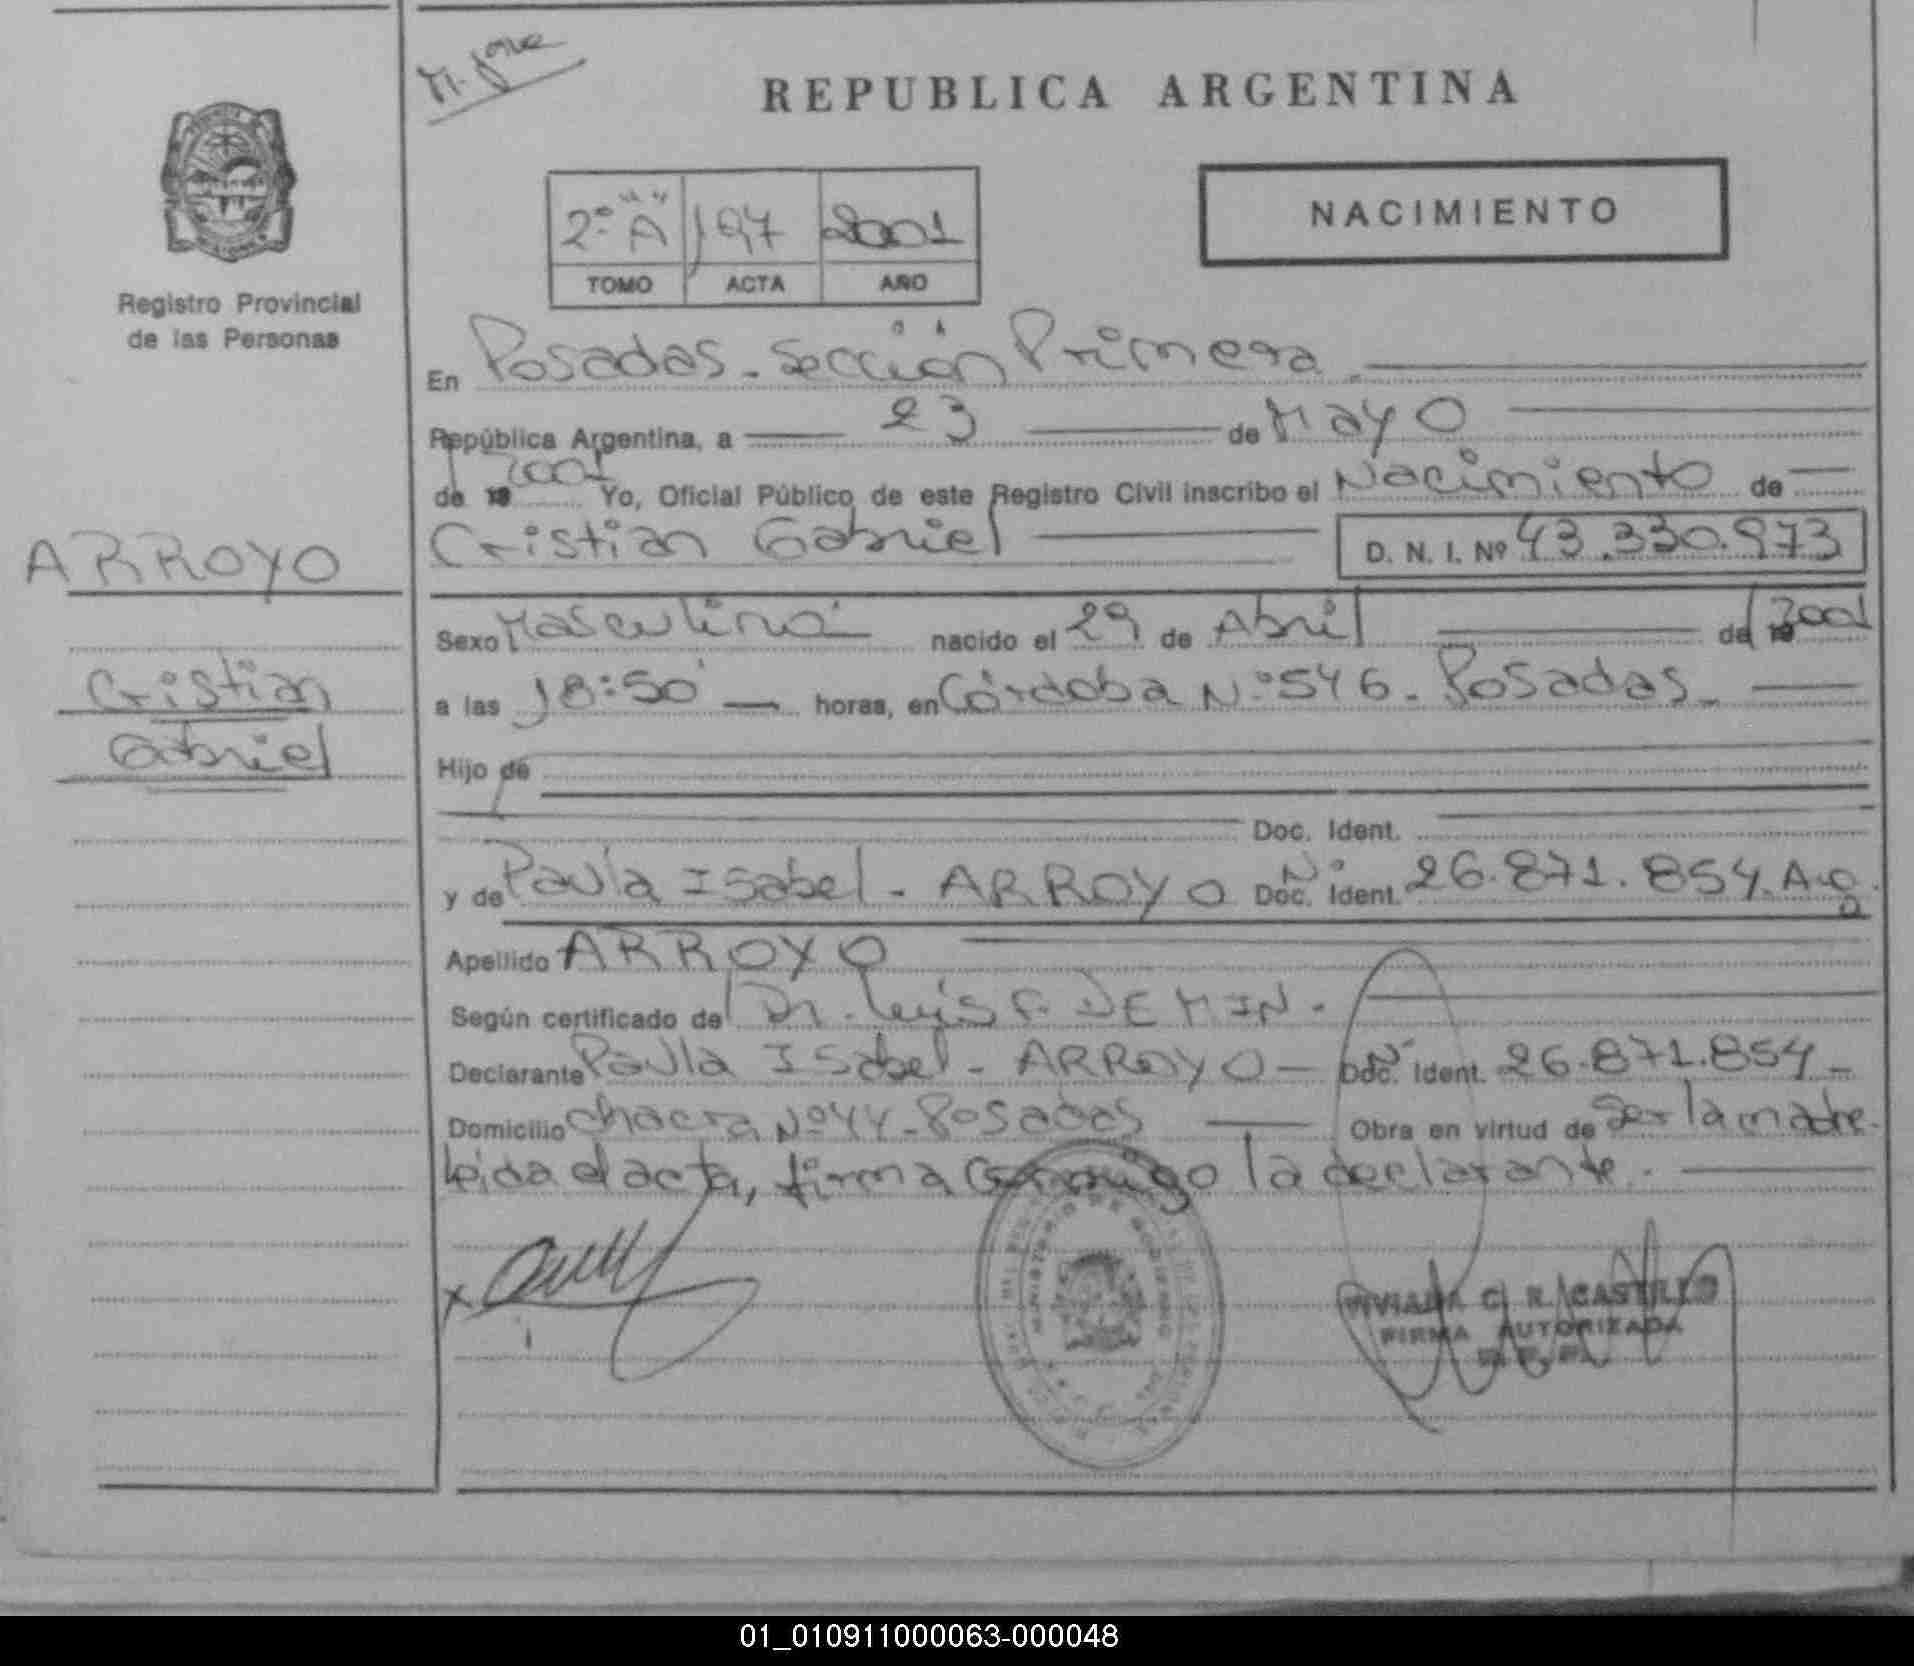 REPUBLICA ARGENTINA
2º "A" 197 2001
TOMO ACTA AÑO
NACIMIENTO
Registro Provincial
de las Personas
En Posadas - Sección Primera
República Argentina, a 23 de Mayo
de 19 2001 Yo, Oficial Público de este Registro Civil inscribo el Nacimiento de
Cristian Gabriel D. N. I. Nº 43.330.973
ARROYO
Cristian
Gabriel
Sexo Masculino nacido el 29 de Abril de 19 2001
a las 18:50 horas, en Córdoba Nº 546 - Posadas -
Hijo de
Doc. Ident.
y de Paula Isabel - ARROYO Doc. Ident. Nº 26.871.854
Apellido ARROYO
Según certificado de Dr. Luis F. DEMIN -
Declarante Paula Isabel - ARROYO - Doc. Ident. Nº 26.871.854 -
Domicilio Chacra Nº 44 - Posadas Obra en virtud de ser la madre -
leida el acta, firma conmigo la declarante. -
VIVIANA C. R. CASTILLO
FIRMA AUTORIZADA
01_010911000063-000048